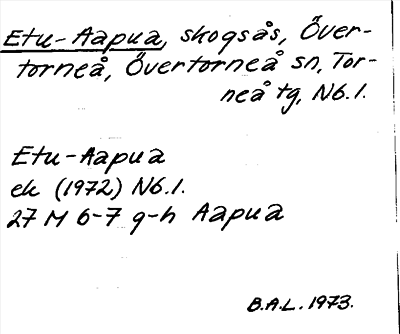 Etu-Aapua, skogsås, Över-
torneå, Övertorneå sn, Tor-
neå tg, Nb.l.
Etu-Aapua
ek (1972) Nb.l.
27 M 6-7 g-h Aapua
B.A.L. 1973.